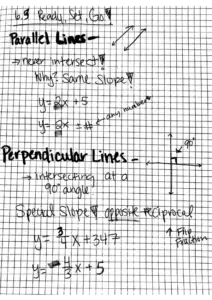 6.3 Ready, Set, Go!
Parallel Lines -
→ never intersect!
Why? Same Slope!
y = 2x + 5
y = 2x ± # ← any number
Perpendicular Lines -
→ intersecting at a 90° angle
90°
Special Slope! opposite reciprocal
↑ Flip Fraction
y = 3/4 x + 347
y = -4/3 x + 5